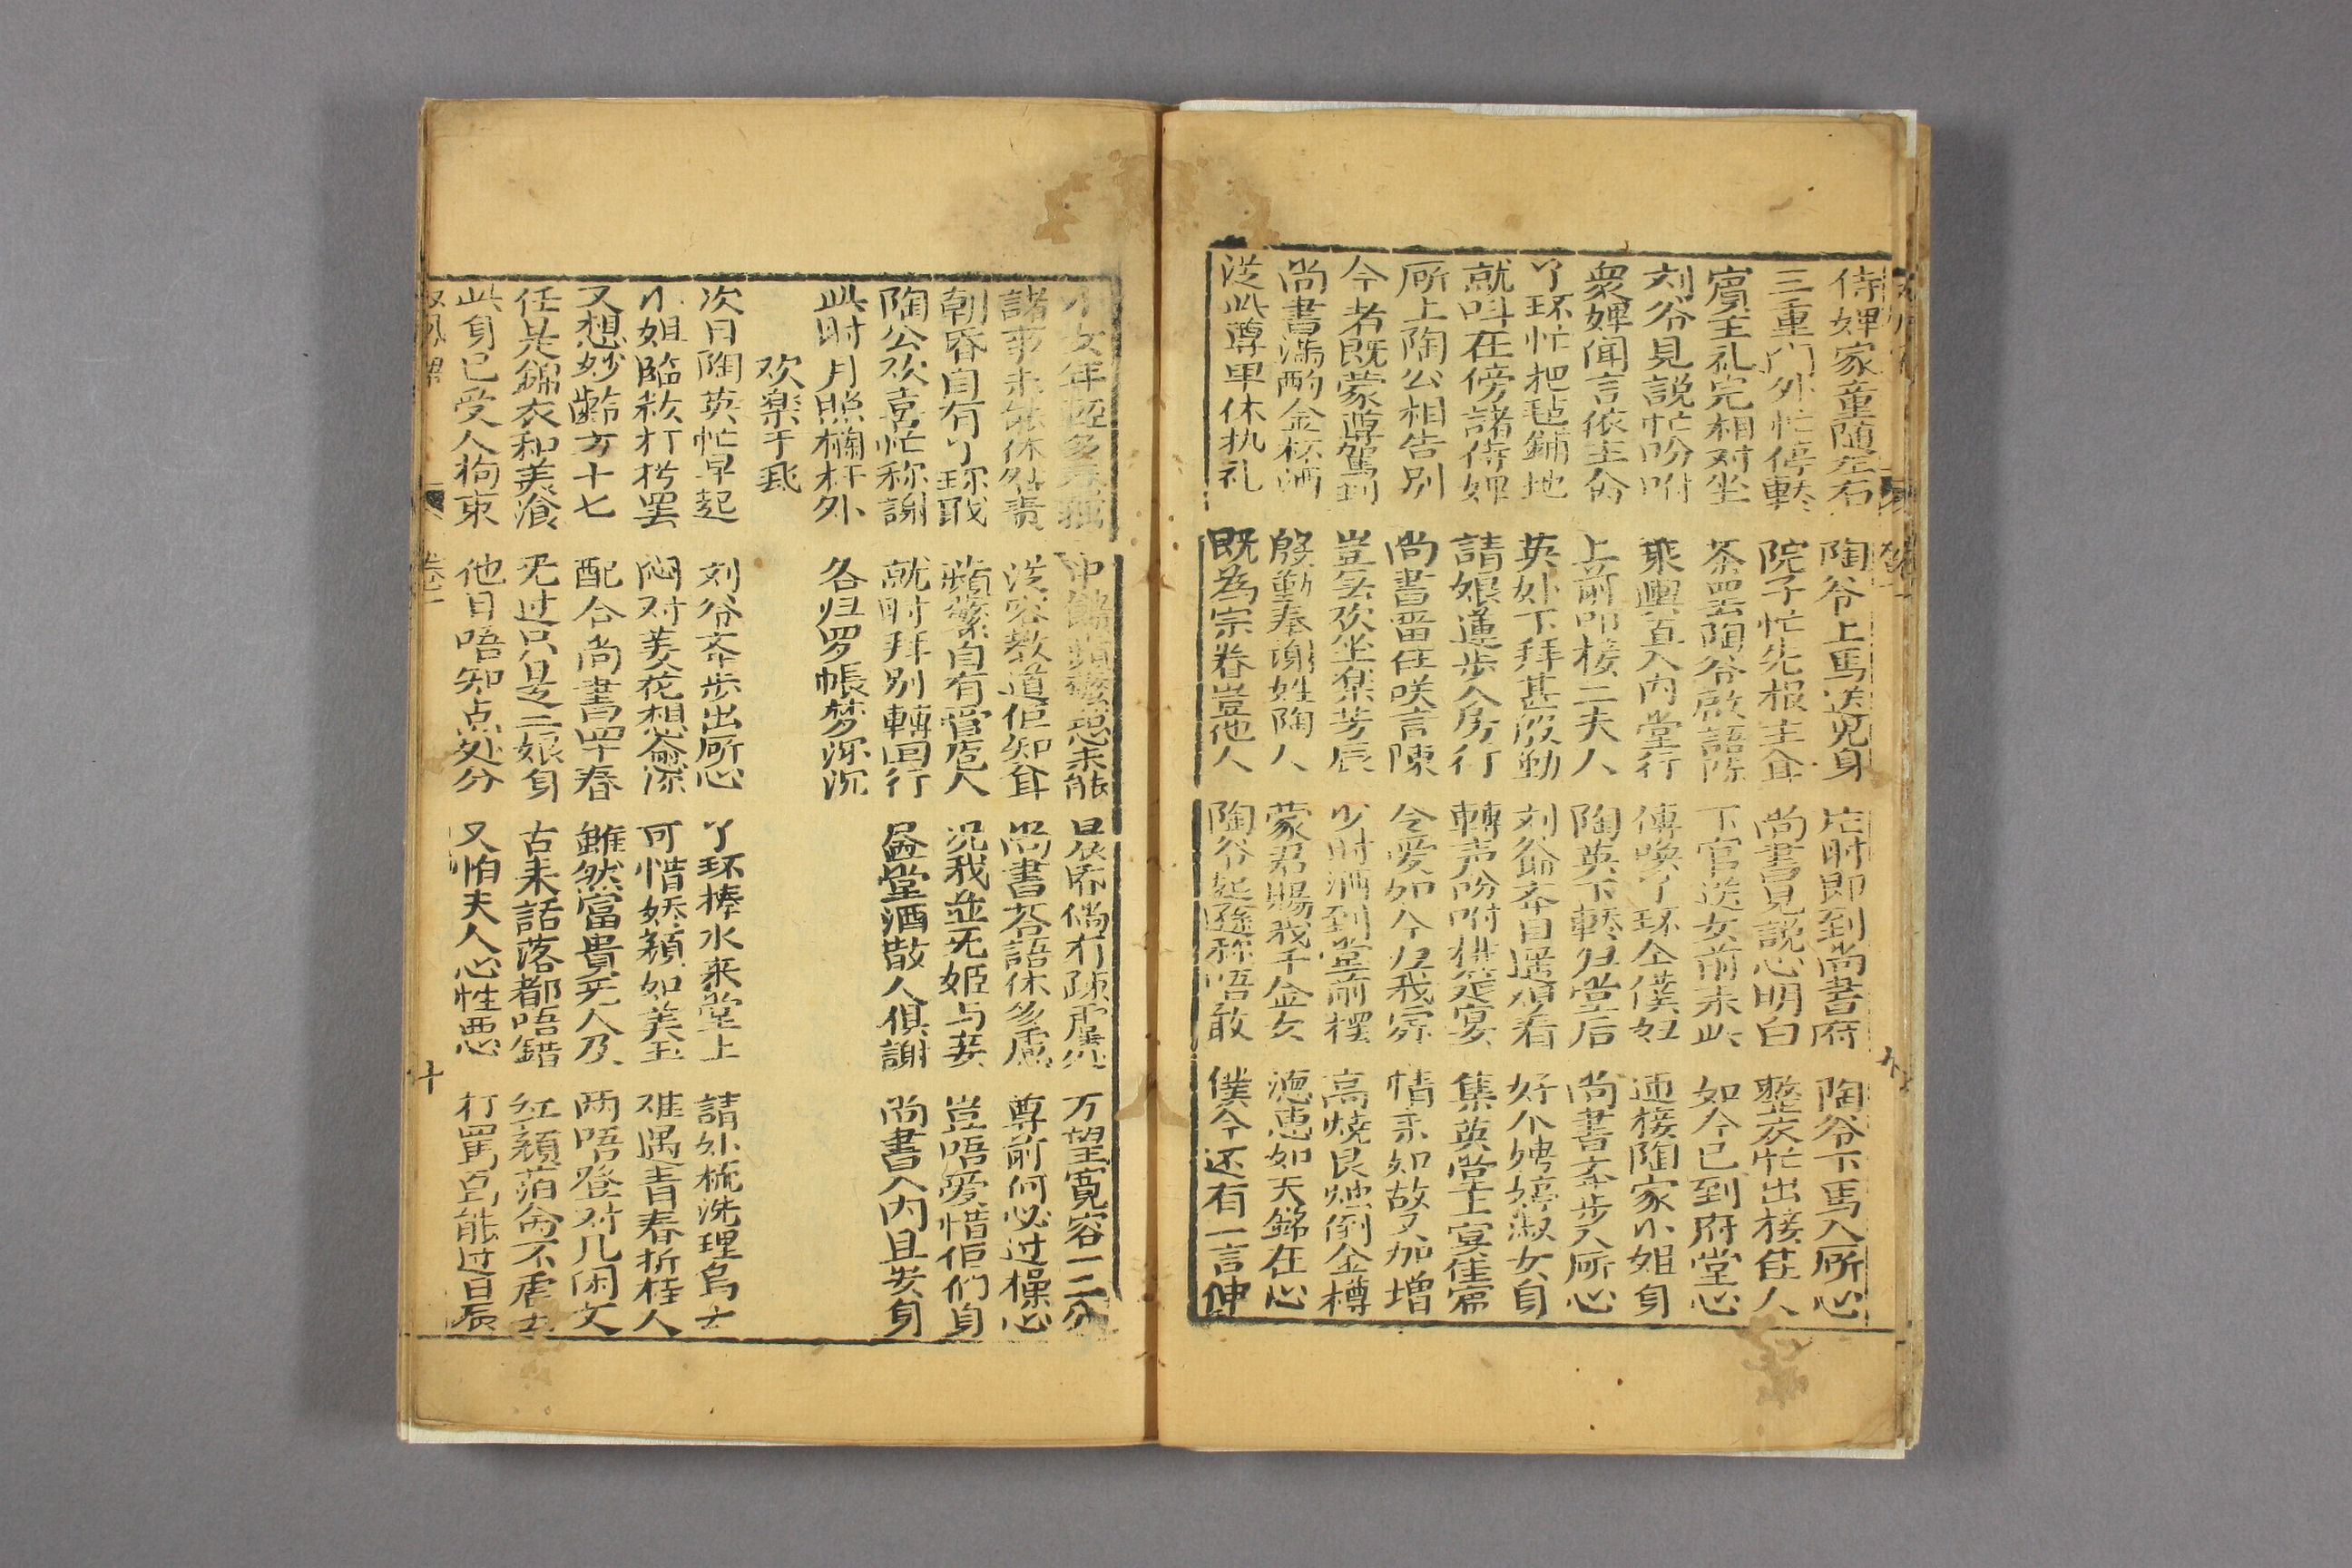 侍婢家童随左右 陶爷上馬送児身 片时即到尚書府 陶爷下馬入厛心
三重门外忙停轎 院子忙先根主 尚書見説心明白 整衣忙出接佳人
賓主礼完相对坐 茶罢陶爷啟語陈 下官送女前来此 如今已到府堂心
刘爷見説忙吩咐 乘輿直入内堂行 傳喚丫环仝僕妇 迎接陶家小姐身
衆婢闻言依主命 上前叩接二夫人 陶英下轎归堂后 尚書奔步入厛心
丫环忙把毡鋪地 英处下拜甚殷勤 刘爺奔目遥偷看 好个娉婷淑女身
就叫在傍諸侍婢 請娘蓮步入房行 轉声吩咐摆筵宴 集英堂上宴佳宾
厛上陶公相告别 尚書畱住咲言陳 令爱如今归我家 情亲如故又加增
今者既蒙尊駕到 豈无欢坐樂芳辰 少时酒到堂前擺 高燒艮烛倒金樽
尚書满酌金杯酒 殷勤奉谢姓陶人 蒙君賜我千金女 德惠如天銘在心
従此尊卑休执礼 既為宗眷豈他人 陶爷起遜称唔敢 僕今还有一言伸
九
小女年轻多 中饋蘋蘩总未能 晨昏倘有疎虞处 万望寬容一二分
諸事未能休处责 従容教道佢知 尚書荅語休多慮 尊前何必过操心
朝昏自有丫环 蘋蘩自有管庖人 况我並无姬与妾 豈唔爱惜佢们身
陶公欢喜忙称謝 就时拜别轉囬行 畱堂酒散人俱謝 尚書入内且安身
此时月照欄杆外 各归罗帳梦深沉
欢楽于飛
次日陶英忙早起 刘爷奔步出厛心 丫环捧水来堂上 請处梳洗理烏云
小姐臨粧打扮罢 闷对菱花想淪深 可惜娇顏如美玉 难遇青春折桂人
又想妙齡方十七 配合尚書四十春 雖然當貴无人及 两唔登对几闲文
任是錦衣和美飡 无过只是二娘身 古来話落都唔錯 红顏薄命不虚云
此身已受人拘束 他日唔知点处分 又怕夫人心性悪 打罵㠯能过日辰
卷一
十